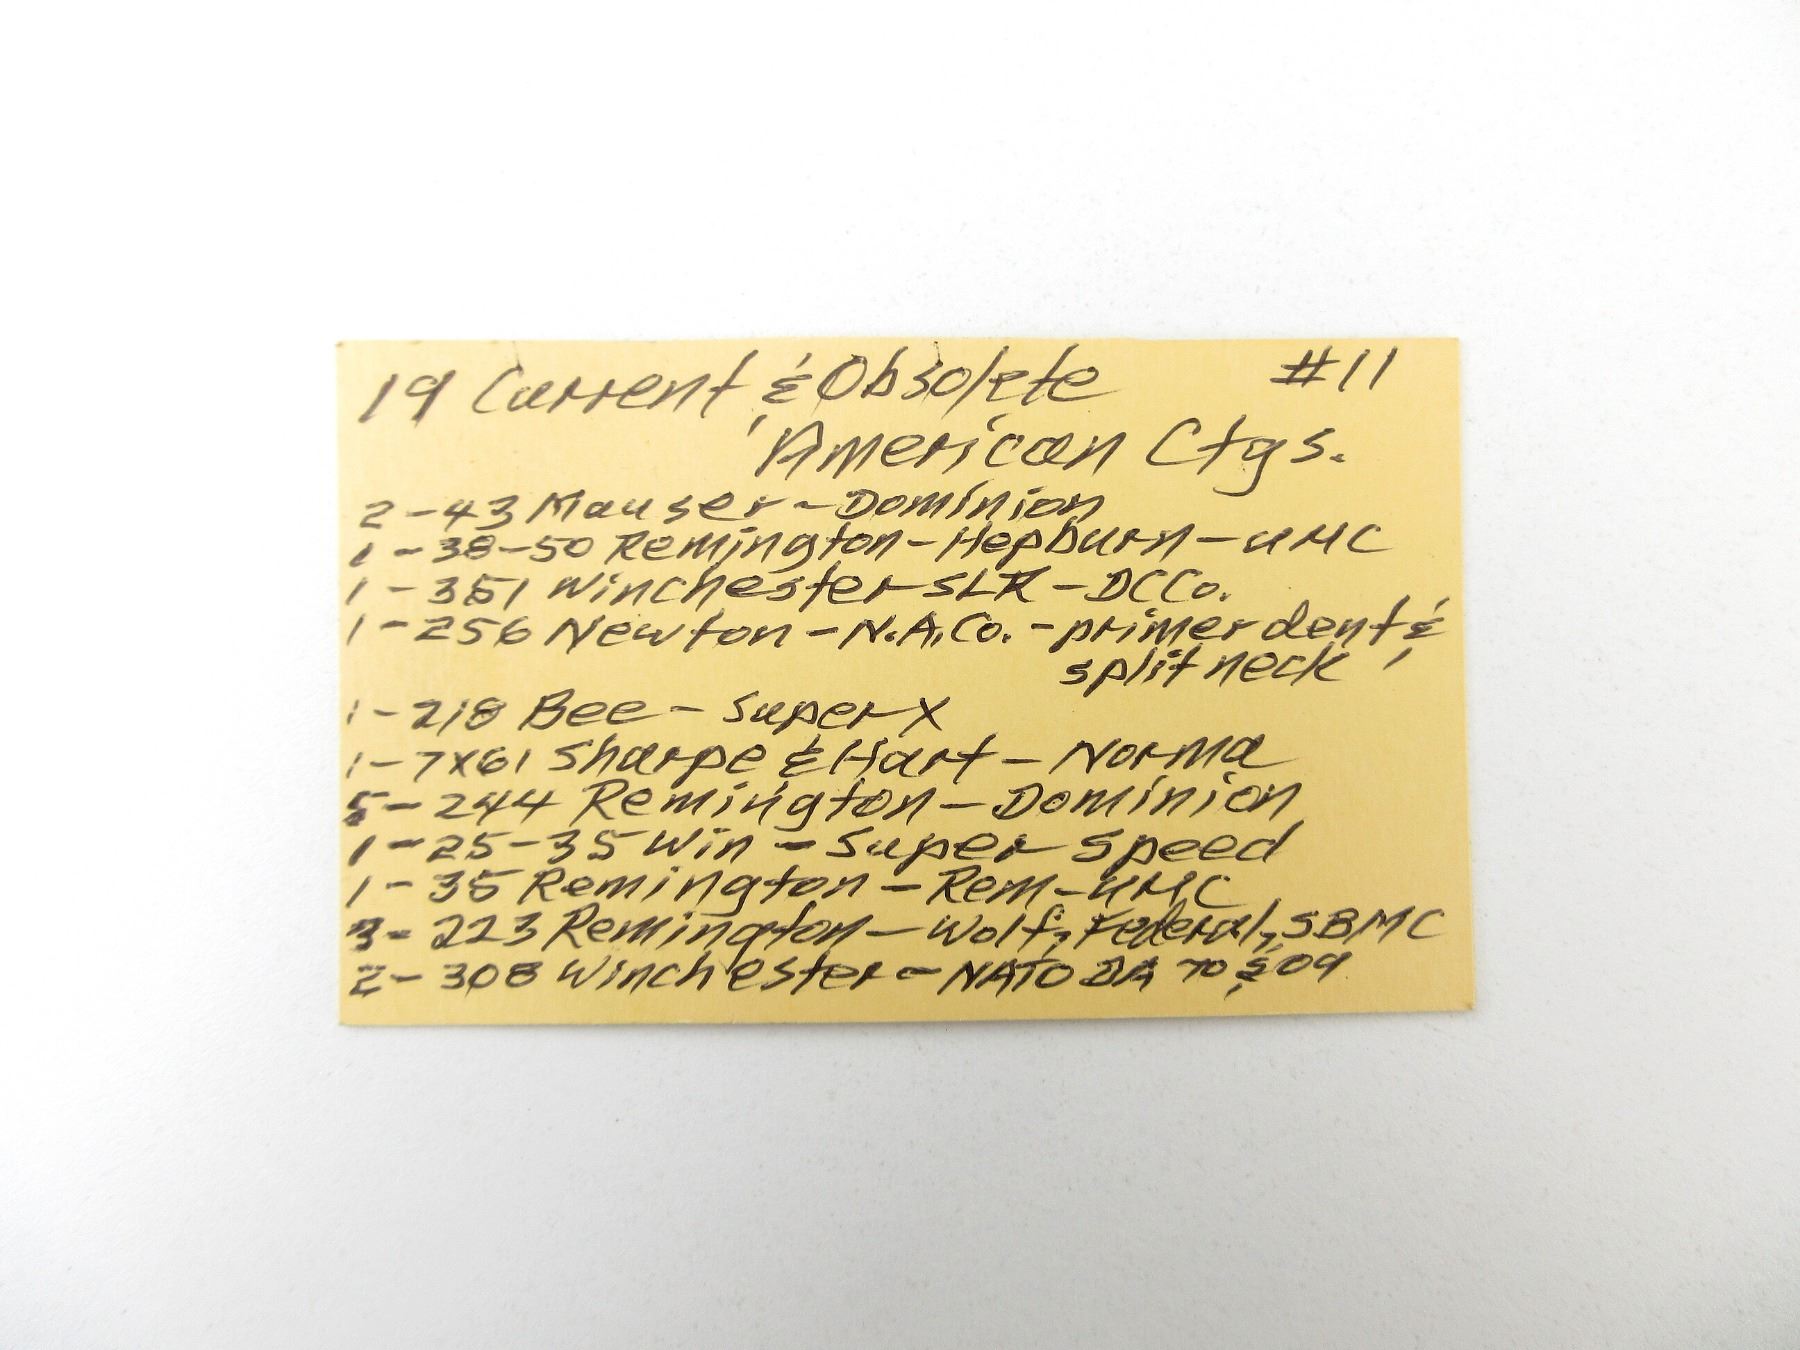 19 Current & Obsolete #11
American Ctgs.
2-43 Mauser-Dominion
1-38-50 Remington-Hepburn-UMC
1-351 Winchester SLR-DCCo.
1-256 Newton-N.A.Co.-primer dent &
split neck
1-218 Bee-Super X
1-7x61 Sharpe & Hart-Norma
5-244 Remington-Dominion
1-25-35 Win-Super Speed
1-35 Remington-Rem-UMC
3-223 Remington-Wolf, Federal, SBMC
2-308 Winchester-NATO DA 70 & 09